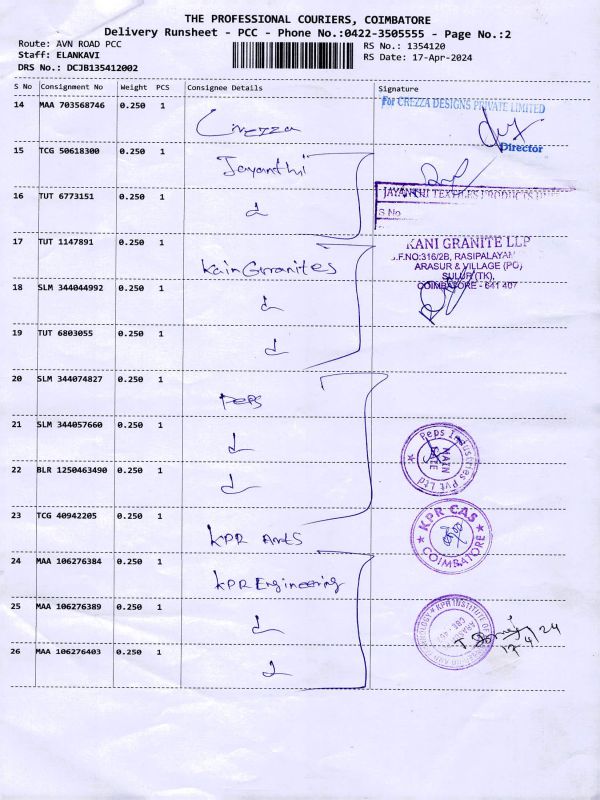 THE PROFESSIONAL COURIERS, COIMBATORE
Delivery Runsheet - PCC - Phone No.:0422-3505555 - Page No.:2
Route: AVN ROAD PCC
Staff: ELANKAVI
DRS No.: DCJB135412002
RS No.: 1354120
RS Date: 17-Apr-2024
S No Consignment No Weight PCS Consignee Details Signature
14 MAA 703568746 0.250 1 Crezza
For CREZZA DESIGNS PRIVATE LIMITED
Director
15 TCG 50618300 0.250 1 Jayanthi
JAYANTHI TEXTILES PRODUCTS
S.No
16 TUT 6773151 0.250 1
17 TUT 1147891 0.250 1 Kain Grranites
KANI GRANITE LLP
S.F.NO:316/2B, RASIPALAYAM
ARASUR & VILLAGE (PO)
SULUR (TK),
COIMBATORE - 641 407
18 SLM 344044992 0.250 1
19 TUT 6803055 0.250 1
20 SLM 344074827 0.250 1 PePS
21 SLM 344057660 0.250 1
Peps Industries Pvt Ltd
MAIN GATE
22 BLR 1250463490 0.250 1
23 TCG 40942205 0.250 1 KPR Arts
KPR CAS
COIMBATORE
24 MAA 106276384 0.250 1 KPR Engineering
25 MAA 106276389 0.250 1
KPR INSTITUTE OF
17/4/24
26 MAA 106276403 0.250 1